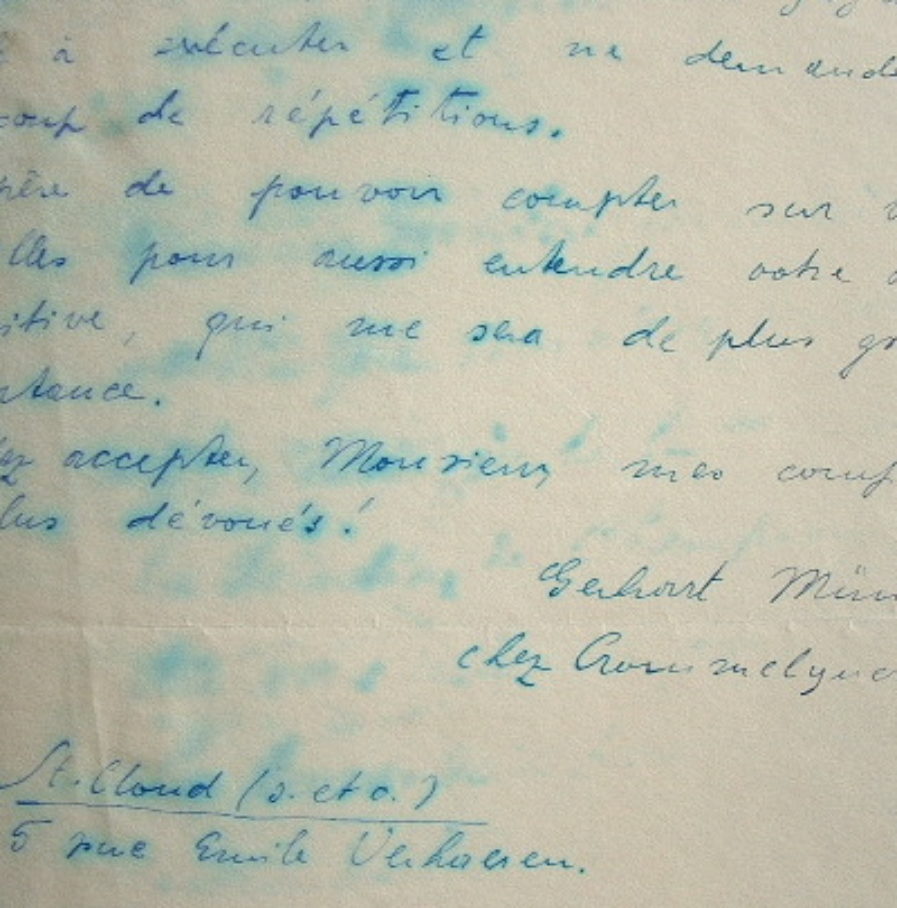 à exécuter et ne demande
coup de répétitions.
père de pouvoir compter sur v
lles pour aussi entendre votre
itive, qui me sera de plus gr
rtance.
ez accepter, Monsieur, mes comp
lus dévoués!
Gerhart Mün
chez Crommelync
St. Cloud (S. et O.)
5 rue Emile Verhaeren.